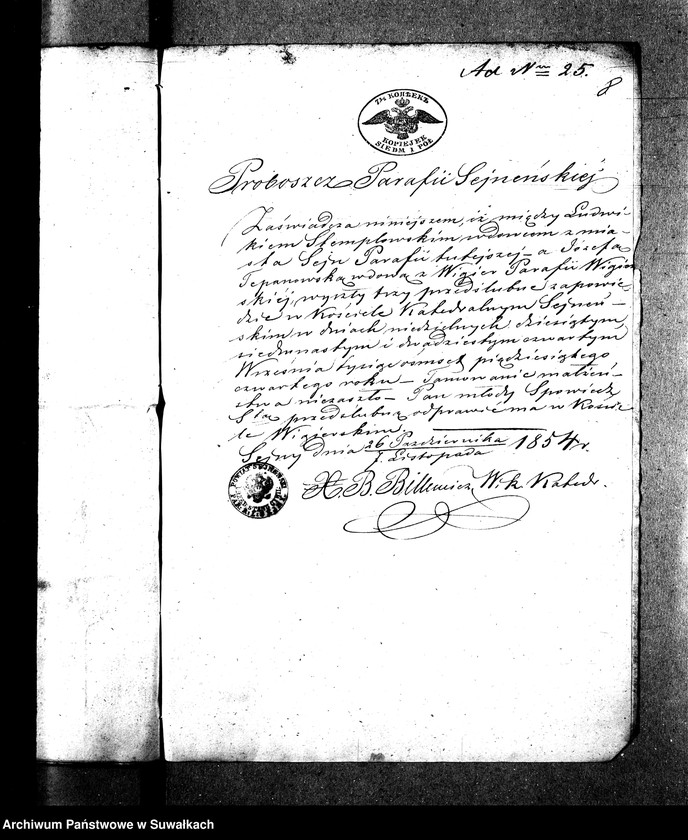 Ad Nrm 25.
8
7½ КОПѢЕКЪ
KOPIEJEK
SIEDM I PÓŁ
Proboszcz Parafii Sejneńskiej
Zaświadcza niniejszem, iż między Ludwi-
kiem Stemplowskim wdowcem z mia-
sta Sejn Parafii tutejszej - a Józefa
wdową z Wigier Parafii Wigier
skiéj, wyszły trzy przedślubne zapowie
dzie w Kościele Katedralnym Sejneń-
skim w dniach niedzielnych dziesiątym,
siedmnastym i dwudziestym czwartym
Września tysiąc ośmset piędziesiątego
czwartego roku - Tamowanie małżeń-
stwa niezaszło - Pan młody Spowiedź
Stą przedślubną odprawić ma w Koście
le Wigierskim.
Sejny dnia 26 Października / 7. Listopada 1854 r.
X. B. Billewicz W. k. Katedr.
POWIAT SEYNENSKI
Archiwum Państwowe w Suwałkach